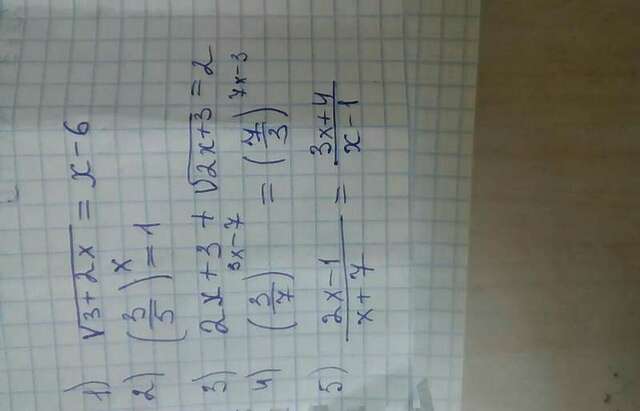 1) √(3+2x) = x-6
2) (3/5)^x = 1
3) 2x+3+√(2x+3) = 2
4) (3/7)^(3x-7) = (7/3)^(7x-3)
5) (2x-1)/(x+7) = (3x+4)/(x-1)